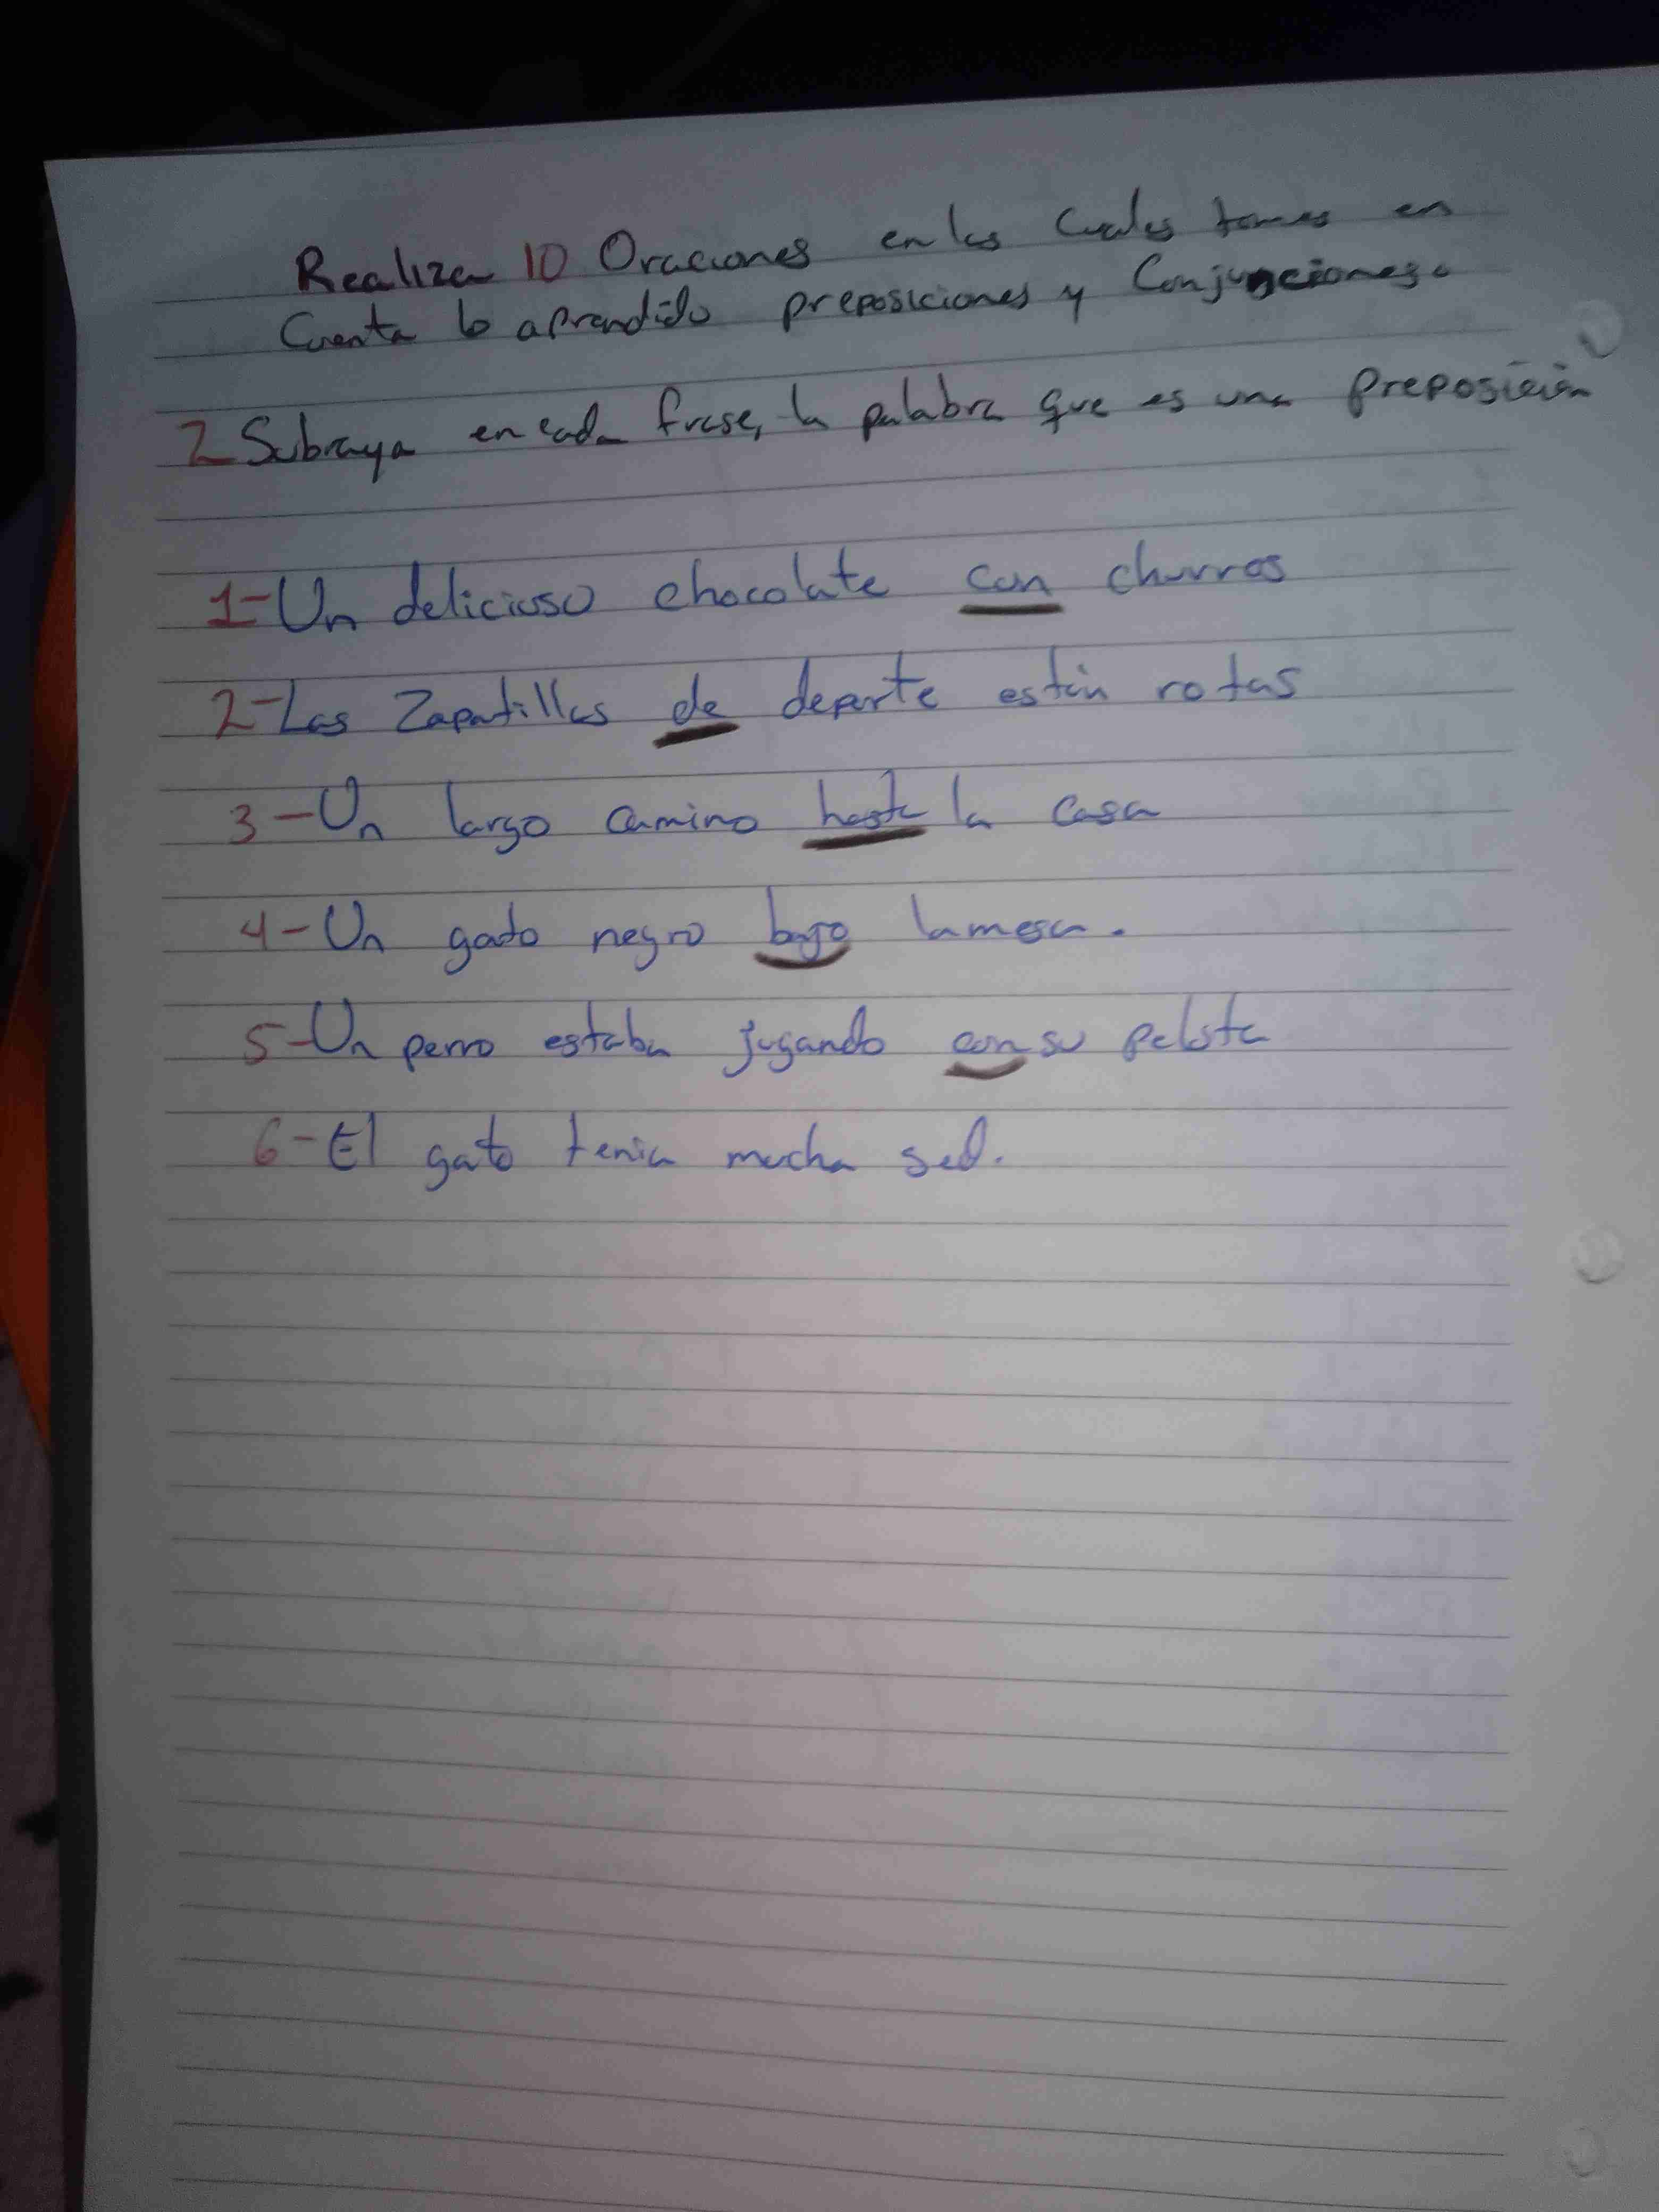 Realiza 10 Oraciones en las Cuales tomes en
Cuenta lo aprendido preposiciones y Conjunciones.
2 Subraya en cada frase, la palabra que es una preposición
1-Un delicioso chocolate con churros
2-Las Zapatillas de deporte están rotas
3-Un largo camino hasta la casa
4-Un gato negro bajo la mesa.
5-Un perro estaba jugando con su pelota
6-El gato tenia mucha sed.